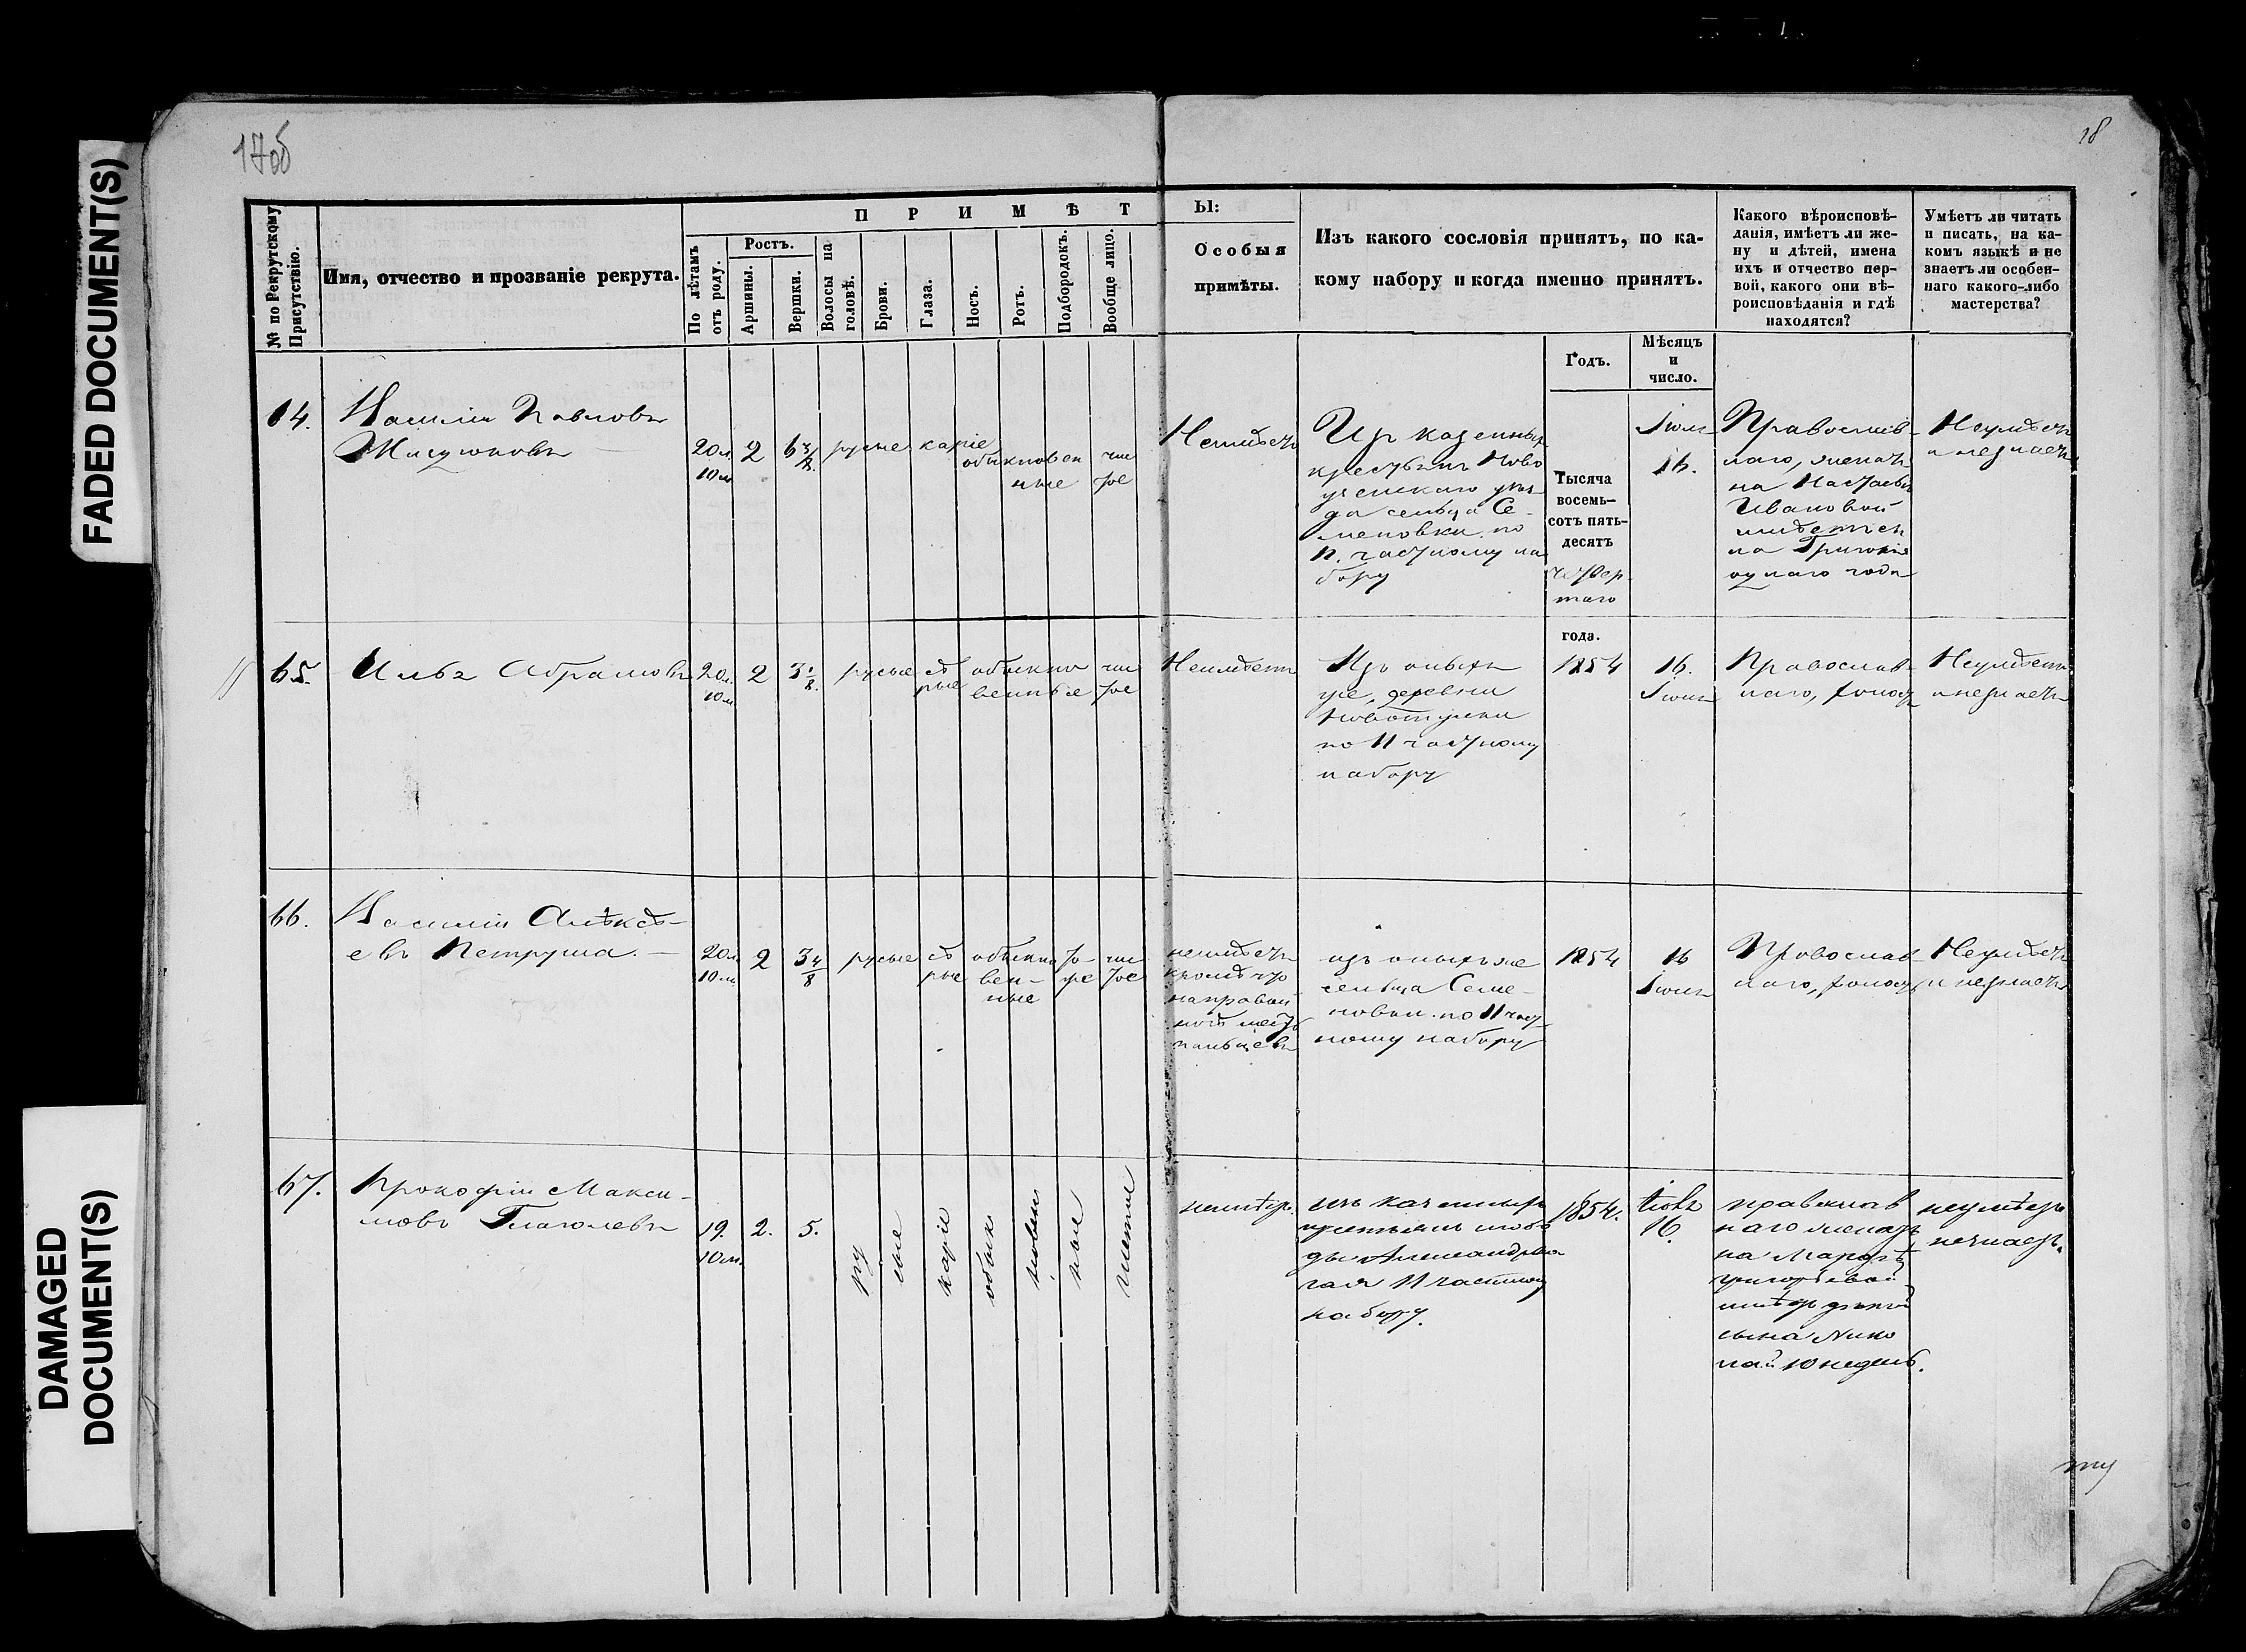 FADED DOCUMENT(S)
DAMAGED
DOCUMENT(S)
17об
18
№ по Рекрутскому
Присутствію.
Имя, отчество и прозваніе рекрута.
П Р И М Ѣ Т
Ы:
По лѣтамъ
отъ роду.
Ростъ.
Аршины.
Вершки.
Волосы на
головѣ.
Брови.
Глаза.
Носъ.
Ротъ.
Подбородокъ.
Вообще лицо.
Особыя
примѣты.
Изъ какого сословія принятъ, по ка-
кому набору и когда именно принятъ.
Годъ.
Мѣсяцъ
и
число.
Какого вѣроисповѣ-
данія, имѣетъ ли же-
ну и дѣтей, имена
ихъ и отчество пер-
вой, какого они вѣ-
роисповѣданія и гдѣ
находятся?
Умѣетъ ли читать
и писать, на ка-
комъ языкѣ и не
знаетъ ли особен-
наго какого-либо
мастерства?
64.
Василій Павловъ
20 л.
10 м
2
6 3/8
русые
каріе
обыкновен
ные
чис
тое
Неимѣетъ
Изъ казенныхъ
крестьянъ Ново
узенскаго уѣз-
да сельца Се-
меновки по
11. частному на
бору
Тысяча
восемь-
сотъ пять-
десятъ
четвер-
таго
года.
Іюля
16.
Православ-
наго, женатъ
на Настасьи
Ивановой
имѣетъ сы
на Григорія
однаго года
Неумѣетъ
и незнаетъ
65.
Илья Абрамовъ
20 л.
10 м
2
3 1/8.
русые
сѣ
рые
обыкно
венные
чис
тое
Неимѣетъ
Изъ оныхъ
же, деревни
по 11 частному
набору
1854
16.
Іюля
Православ-
наго, холостъ
Неумѣетъ
и незнаетъ
66.
Василій Алѣксѣ-
евъ Петруша.
20 л
10 м.
2
3 4/8
русые
сѣ
рые
обыкно
вен-
ные
то-
же
чис
тое
неимѣетъ
кромѣ что
направой
ногѣ шесть
пальцевъ
изъ оныхъ же
сельца Семе-
новки по 11 част
ному набору
1854
16
Іюля
Православ-
наго, холостъ
Неумѣетъ
и незнаетъ
67.
Прокофій Макси-
мовъ Глаголевъ
19.
10 м.
2.
5.
ру
сые
каріе
обык
новен
ные
чистое
неимѣетъ.
изъ казенныхъ
крестьянъ слобо
ды Александрова
гая 11 частному
набору.
1854.
Іюля
16.
православ
наго женатъ
на Марфѣ
Григорьевой
имѣетъ дѣтей
сына Нико
лай 10 недель.
неумѣетъ
незнаетъ.